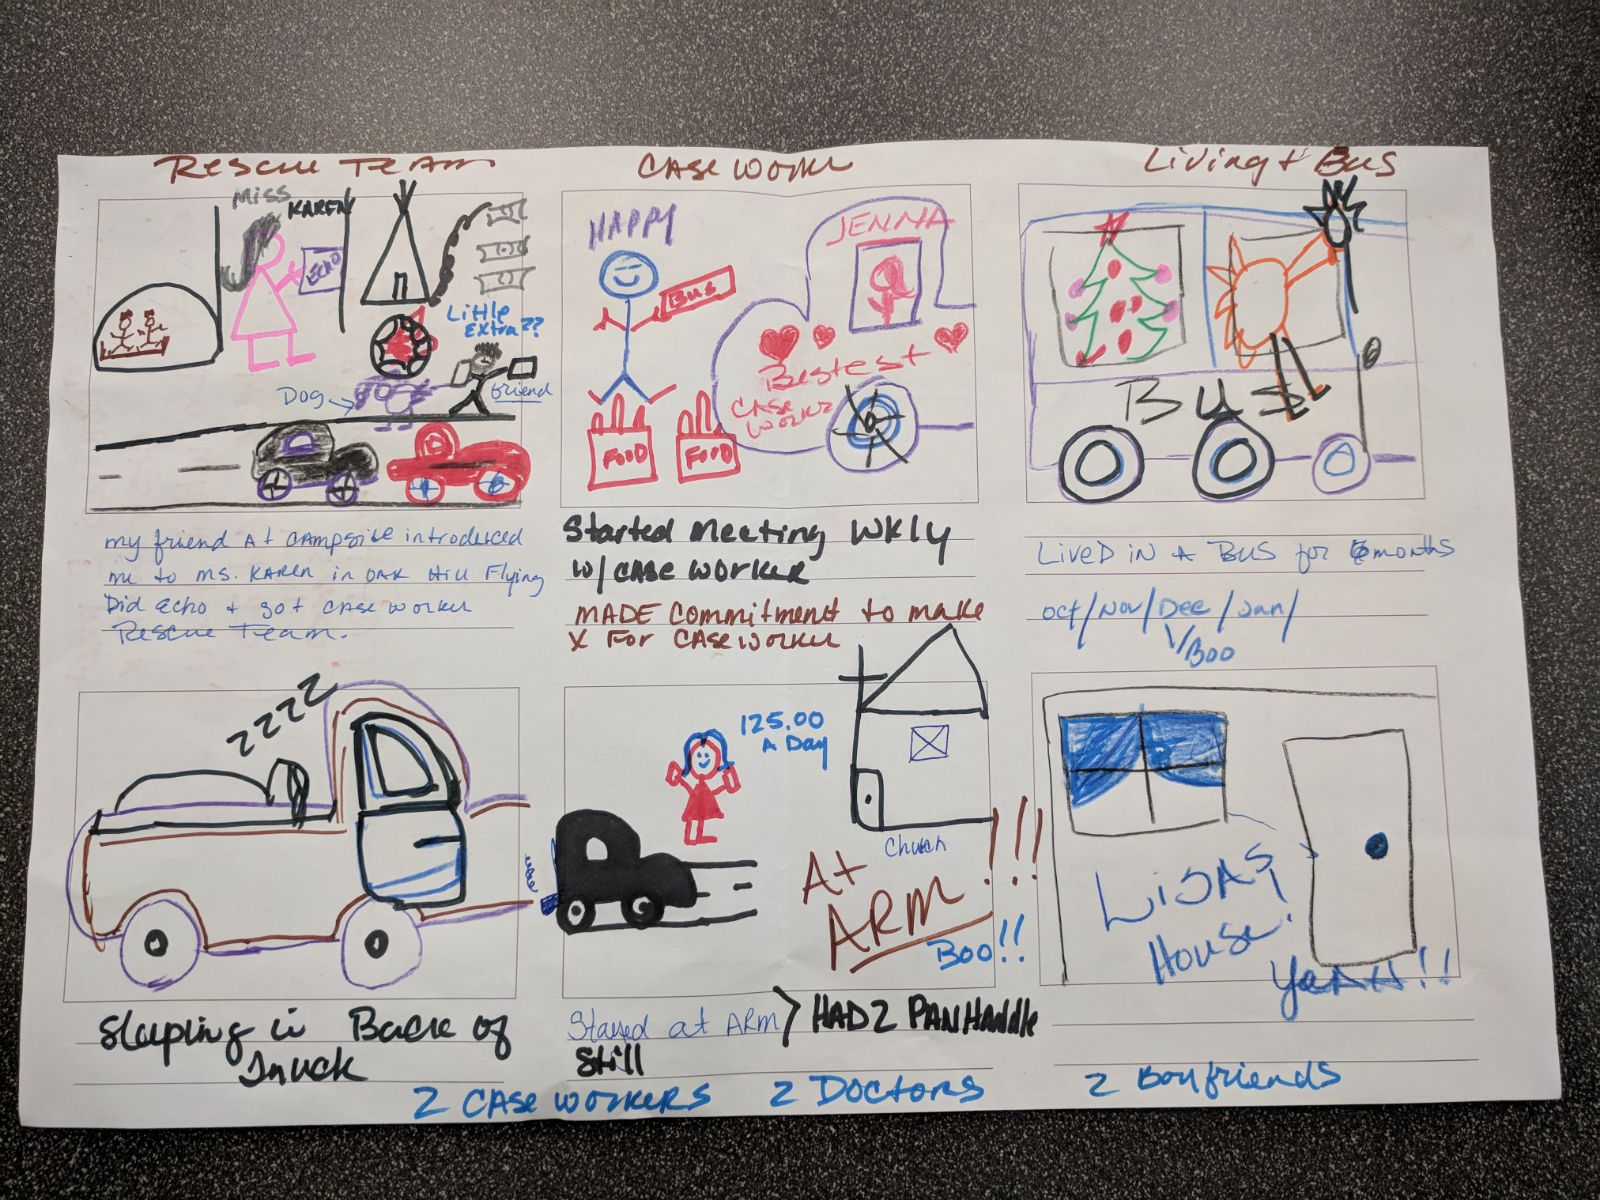 RESCUE TEAM
MISS
KAREN
ECHO
Little
Extra??
Dog
friend
my friend At CAMPSite introduced
me to MS. KAREN in OAK Hill Flying
Did Echo + got CASE WORKER
RESCUE TEAM.
CASE WORKER
HAPPY
Bus
FOOD
FOOD
JENNA
Bestest
CASE
WORKER
Started Meeting WKly
w/CASE WORKER
MADE Commitment to make
X FOR CASEWORKER
Living + Bus
BUS
LIVED IN A BUS for 6 months
oct/Nov/Dec/Jan/
Boo
zzzz
Sleeping in Back of
Truck
125.00
A Day
Church
At
ARM!!!
Boo!!
Stayed at ARM > HAD 2 PANHandle
Still
LISAS
House!
YeAHH!!
2 CASE WORKERS 2 DOCTORS 2 Boyfriends